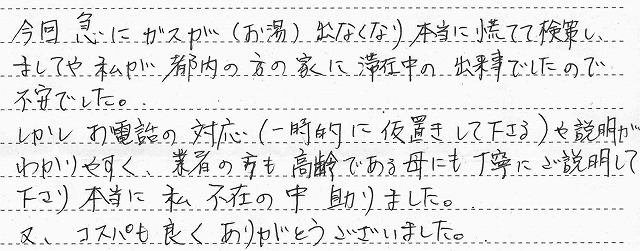 今回 急に ガスが（お湯）出なくなり 本当に 慌てて検策し、
ましてや 私が 都内の方の家に 滞在中の 出来事でしたので
不安でした。
しかし お電話の 対応（一時的に 仮置きして下さる）や説明が
わかりやすく、業者の方も 高齢である母にも 丁寧に ご説明して
下さり 本当に 私 不在の中 助りました。
又、コスパも 良く ありがとうございました。